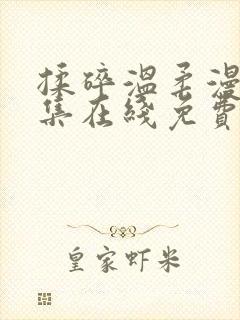 揉碎温柔漫
集在线免費
皇家虾米